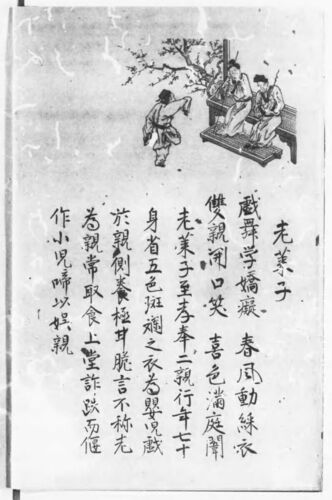 老莱子
戲舞学嬌癡 春風動綵衣
雙親開口笑 喜色滿庭闈
老莱子至孝奉二親行年七十
身着五色斑斕之衣為嬰児戲
於親側養極甘脆言不称老
為親常取食上堂詐跌而偃
作小児啼以娯親